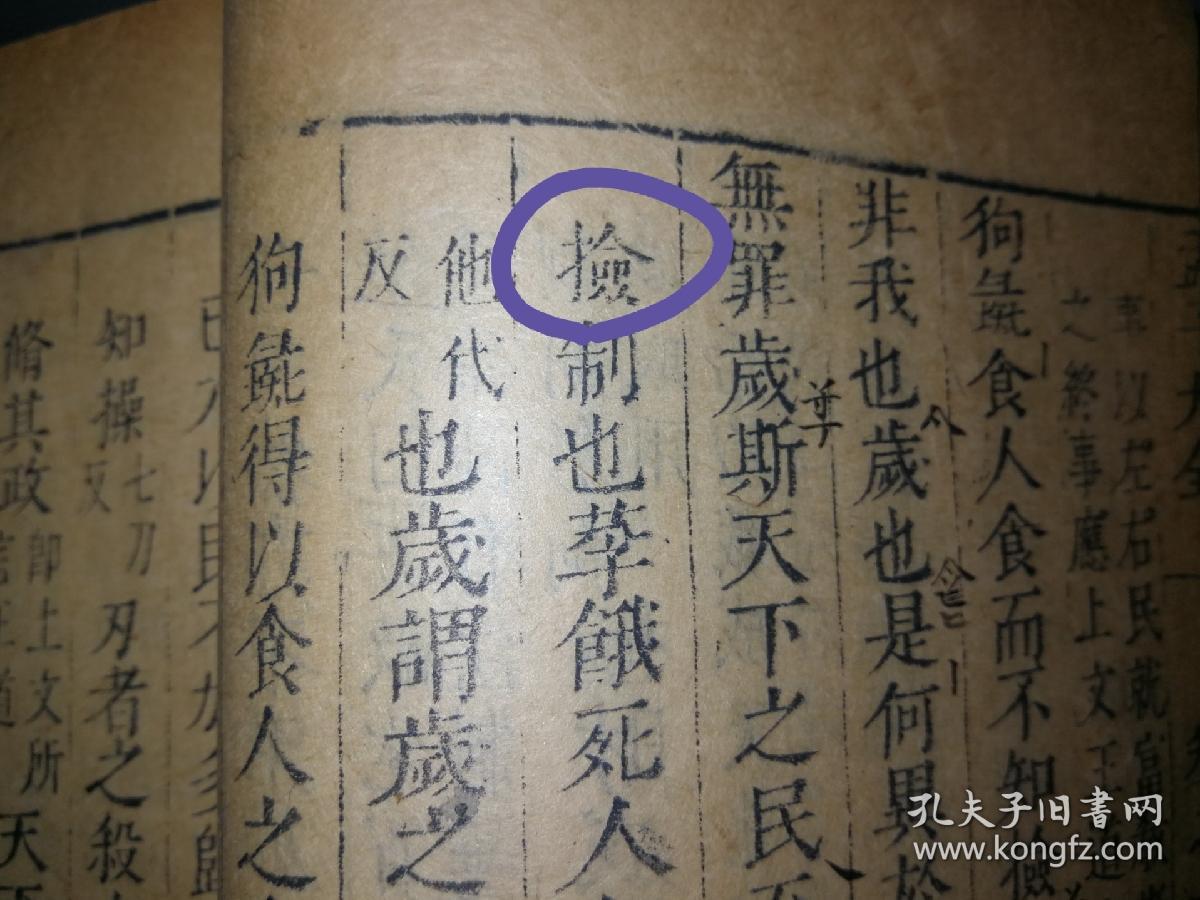 狗彘食人食而不知檢
非我也歲也是何異於
無罪歲斯天下之民
撿制也莩餓死人
他代
反
也歲謂歲之
狗彘得以食人之
知操
七刀
反
刃者之殺
脩其政
即上文所
天
以左右民就富
之終事應上文王
孔夫子旧书网
www.kongfz.com